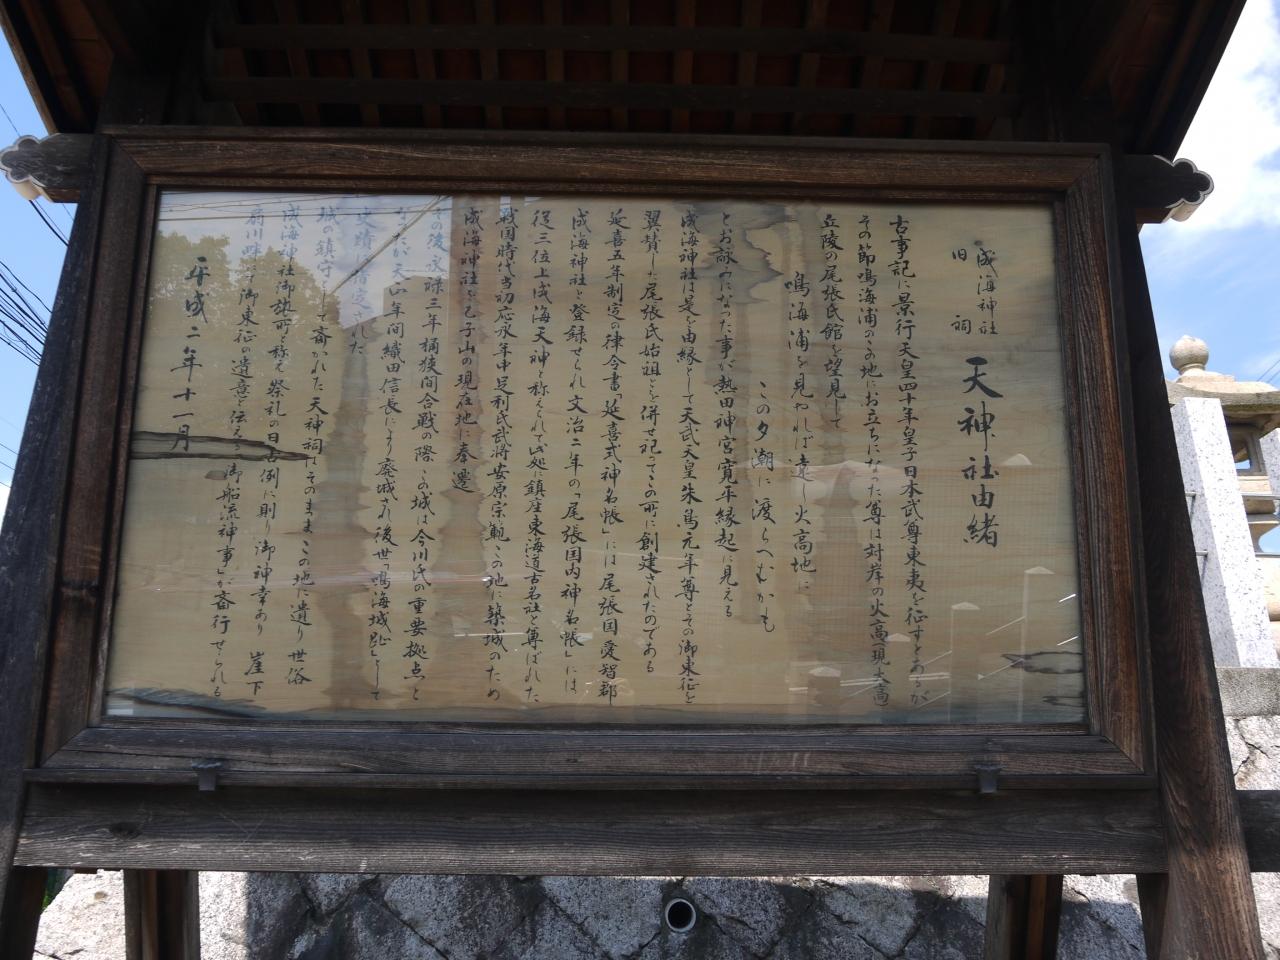 成海神社
旧祠
天神社由緒
古事記に景行天皇四十年皇子日本武尊東夷を征すとあるが
その節鳴海浦のこの地にお立ちになった尊は対岸の火高(現大高)
丘陵の尾張氏館を望見して
鳴海浦を見やれば遠し火高地に
この夕潮に渡らへむかも
とお詠みになった事が熱田神宮寛平縁起に見える
成海神社は是を由縁として天武天皇朱鳥元年尊とその御東征を
翼賛した尾張氏始祖とを併せ祀ってこの所に創建されたのである
延喜五年制定の律令書「延喜式神名帳」には尾張国愛智郡
成海神社と登録せられ文治二年の「尾張国内神名帳」には
従三位上成海天神と称えられて此処に鎮座東海道古名社と尊ばれた
戦国時代当初応永年中足利氏武将安原宗範この地に築城のため
成海神社を乙子山の現在地に奉遷
その後永禄三年桶狭間合戦の際この城は今川氏の重要拠点と
なったが天正年間織田信長により廃城され後世「鳴海城趾」として
史蹟に指定された
城の鎮守として斎かれた天神祠はそのままこの地に遺り世俗
成海神社御旅所と称え祭礼の日古例に則り御神幸あり 崖下
扇川畔で御東征の遺意を伝える「御船流神事」が斎行せられる
平成二年十一月